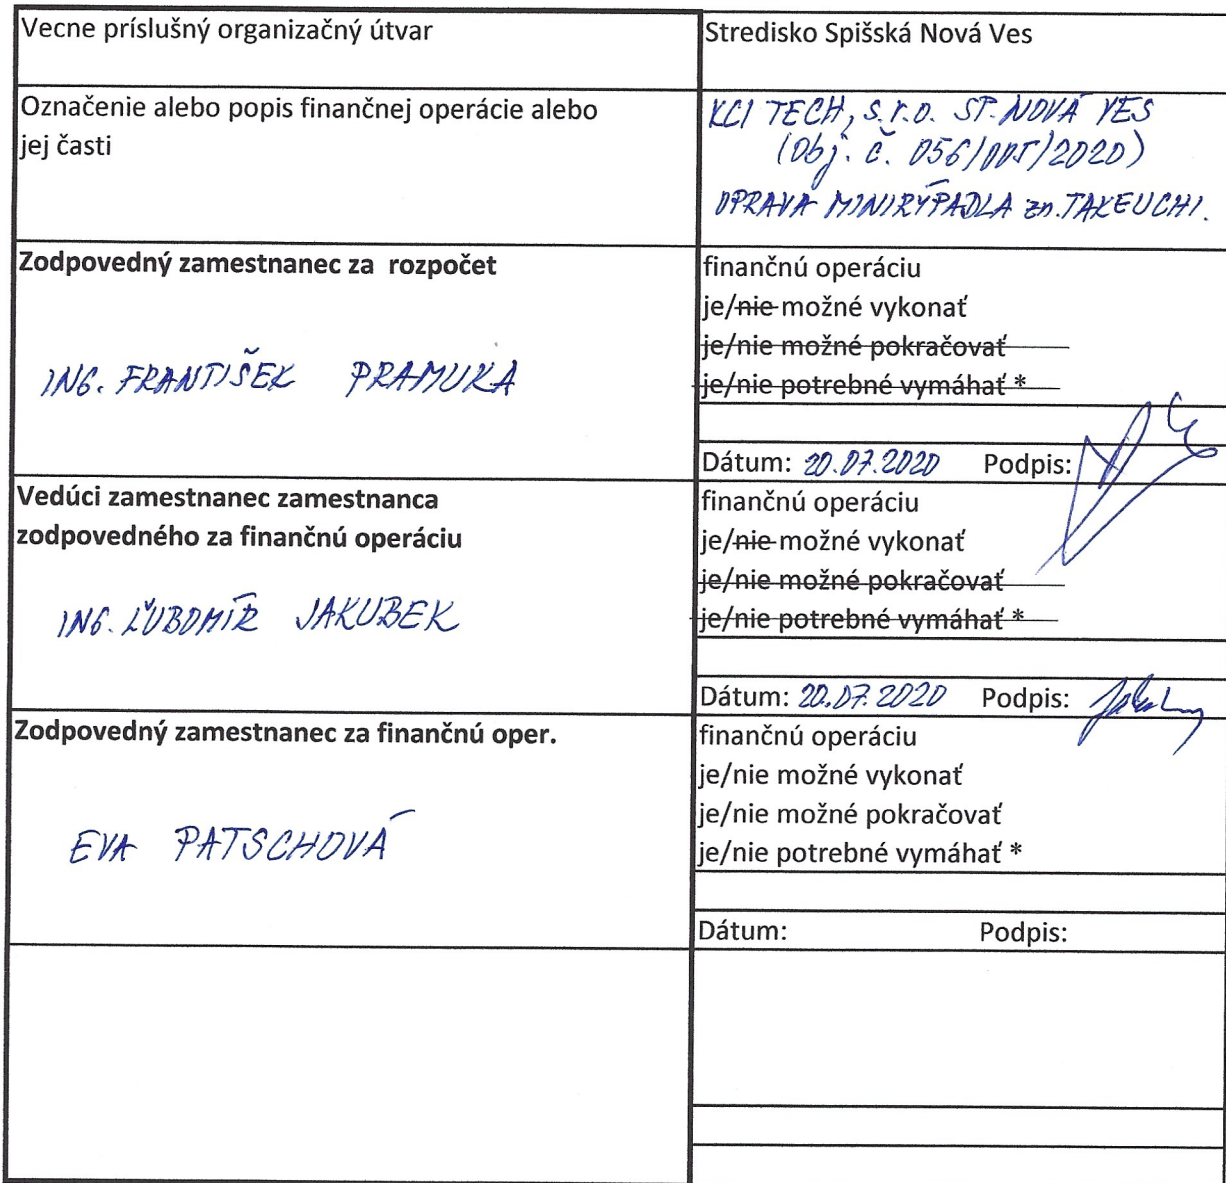 Vecne príslušný organizačný útvar
Stredisko Spišská Nová Ves
Označenie alebo popis finančnej operácie alebo
jej časti
KCI TECH, s.r.o. SP. NOVÁ VES
(Obj. č. 056/OOS/2020)
OPRAVA MINIRÝPADLA zn. TAKEUCHI.
Zodpovedný zamestnanec za rozpočet
ING. FRANTIŠEK PRAMUKA
finančnú operáciu
je/nie možné vykonať
je/nie možné pokračovať
je/nie potrebné vymáhať *
Dátum: 20.07.2020 Podpis:
Vedúci zamestnanec zamestnanca
zodpovedného za finančnú operáciu
ING. ĽUBOMÍR JAKUBEK
finančnú operáciu
je/nie možné vykonať
je/nie možné pokračovať
je/nie potrebné vymáhať *
Dátum: 20.07.2020 Podpis:
Zodpovedný zamestnanec za finančnú oper.
EVA PATSCHOVÁ
finančnú operáciu
je/nie možné vykonať
je/nie možné pokračovať
je/nie potrebné vymáhať *
Dátum: Podpis: